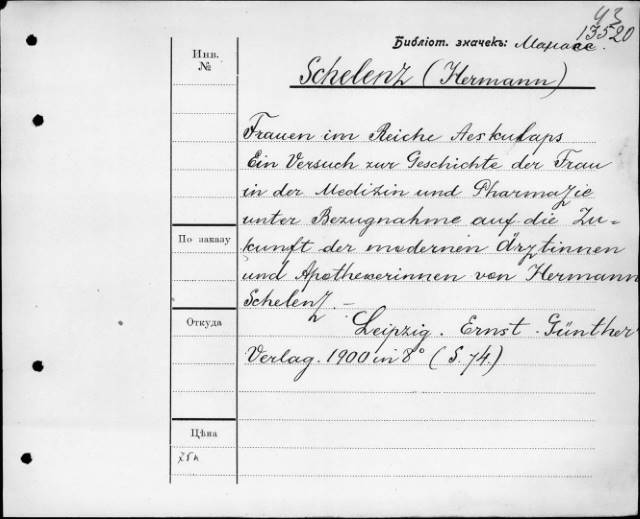 43
13520
Библіот. значекъ: Марасс.
Инв.
№
Schelenz (Hermann)
Frauen im Reiche Aeskulaps
Ein Versuch zur Geschichte der Frau
in der Medizin und Pharmazie
unter Bezugnahme auf die Zu=
По заказу
kunft der modernen Ärztinnen
und Apothekerinnen von Hermann
Schelenz. –
Откуда
Leipzig. Ernst. Günther
Verlag. 1900 in 8° (S. 74.)
Цѣна